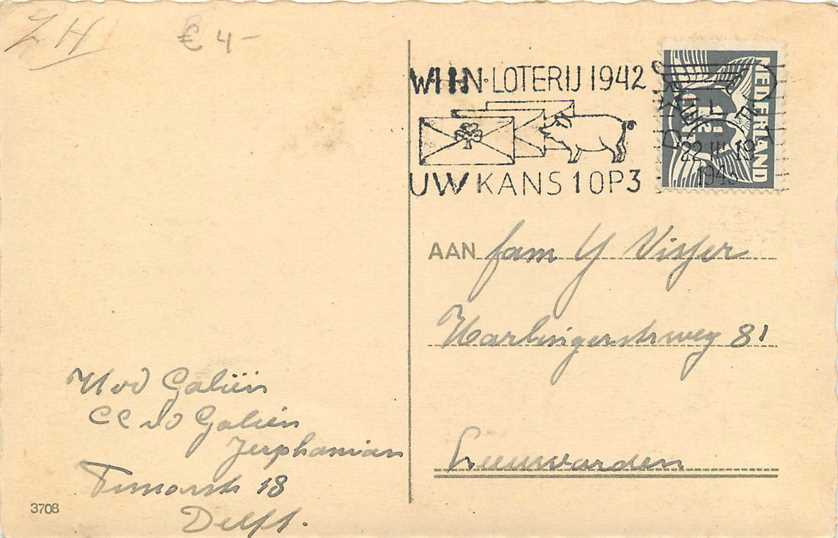 ZH € 4-
W.H.N. LOTERIJ 1942
UW KANS 1 OP 3
NEDERLAND
22 III 19
AAN fam Y Visser
Harlingerstrweg 81
Leeuwarden
Galiën
Galiën
Jerphanian
18
Delft.
3708